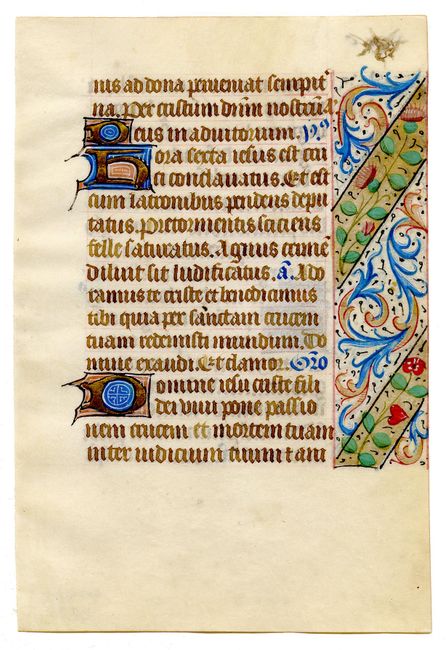 nis ad dona perveniat sempit
na. Per cristum dnm nostrum.
Deus in adiutorium. ps
Hora sexta iesus est cru
ci conclavatus. Et est
cum latronibus pendens depu
tatus. Pre tormentis sitiens
felle saturatus. Agnus crime
diluit sit ludificatus. a. Ado
ramus te criste et benedicimus
tibi quia per sanctam crucem
tuam redemisti mundum. Do
mine exaudi. Et clamor. Oro
Domine iesu criste fili
dei vivi pone passio
nem crucem et mortem tuam
inter iudicium tuum et ani